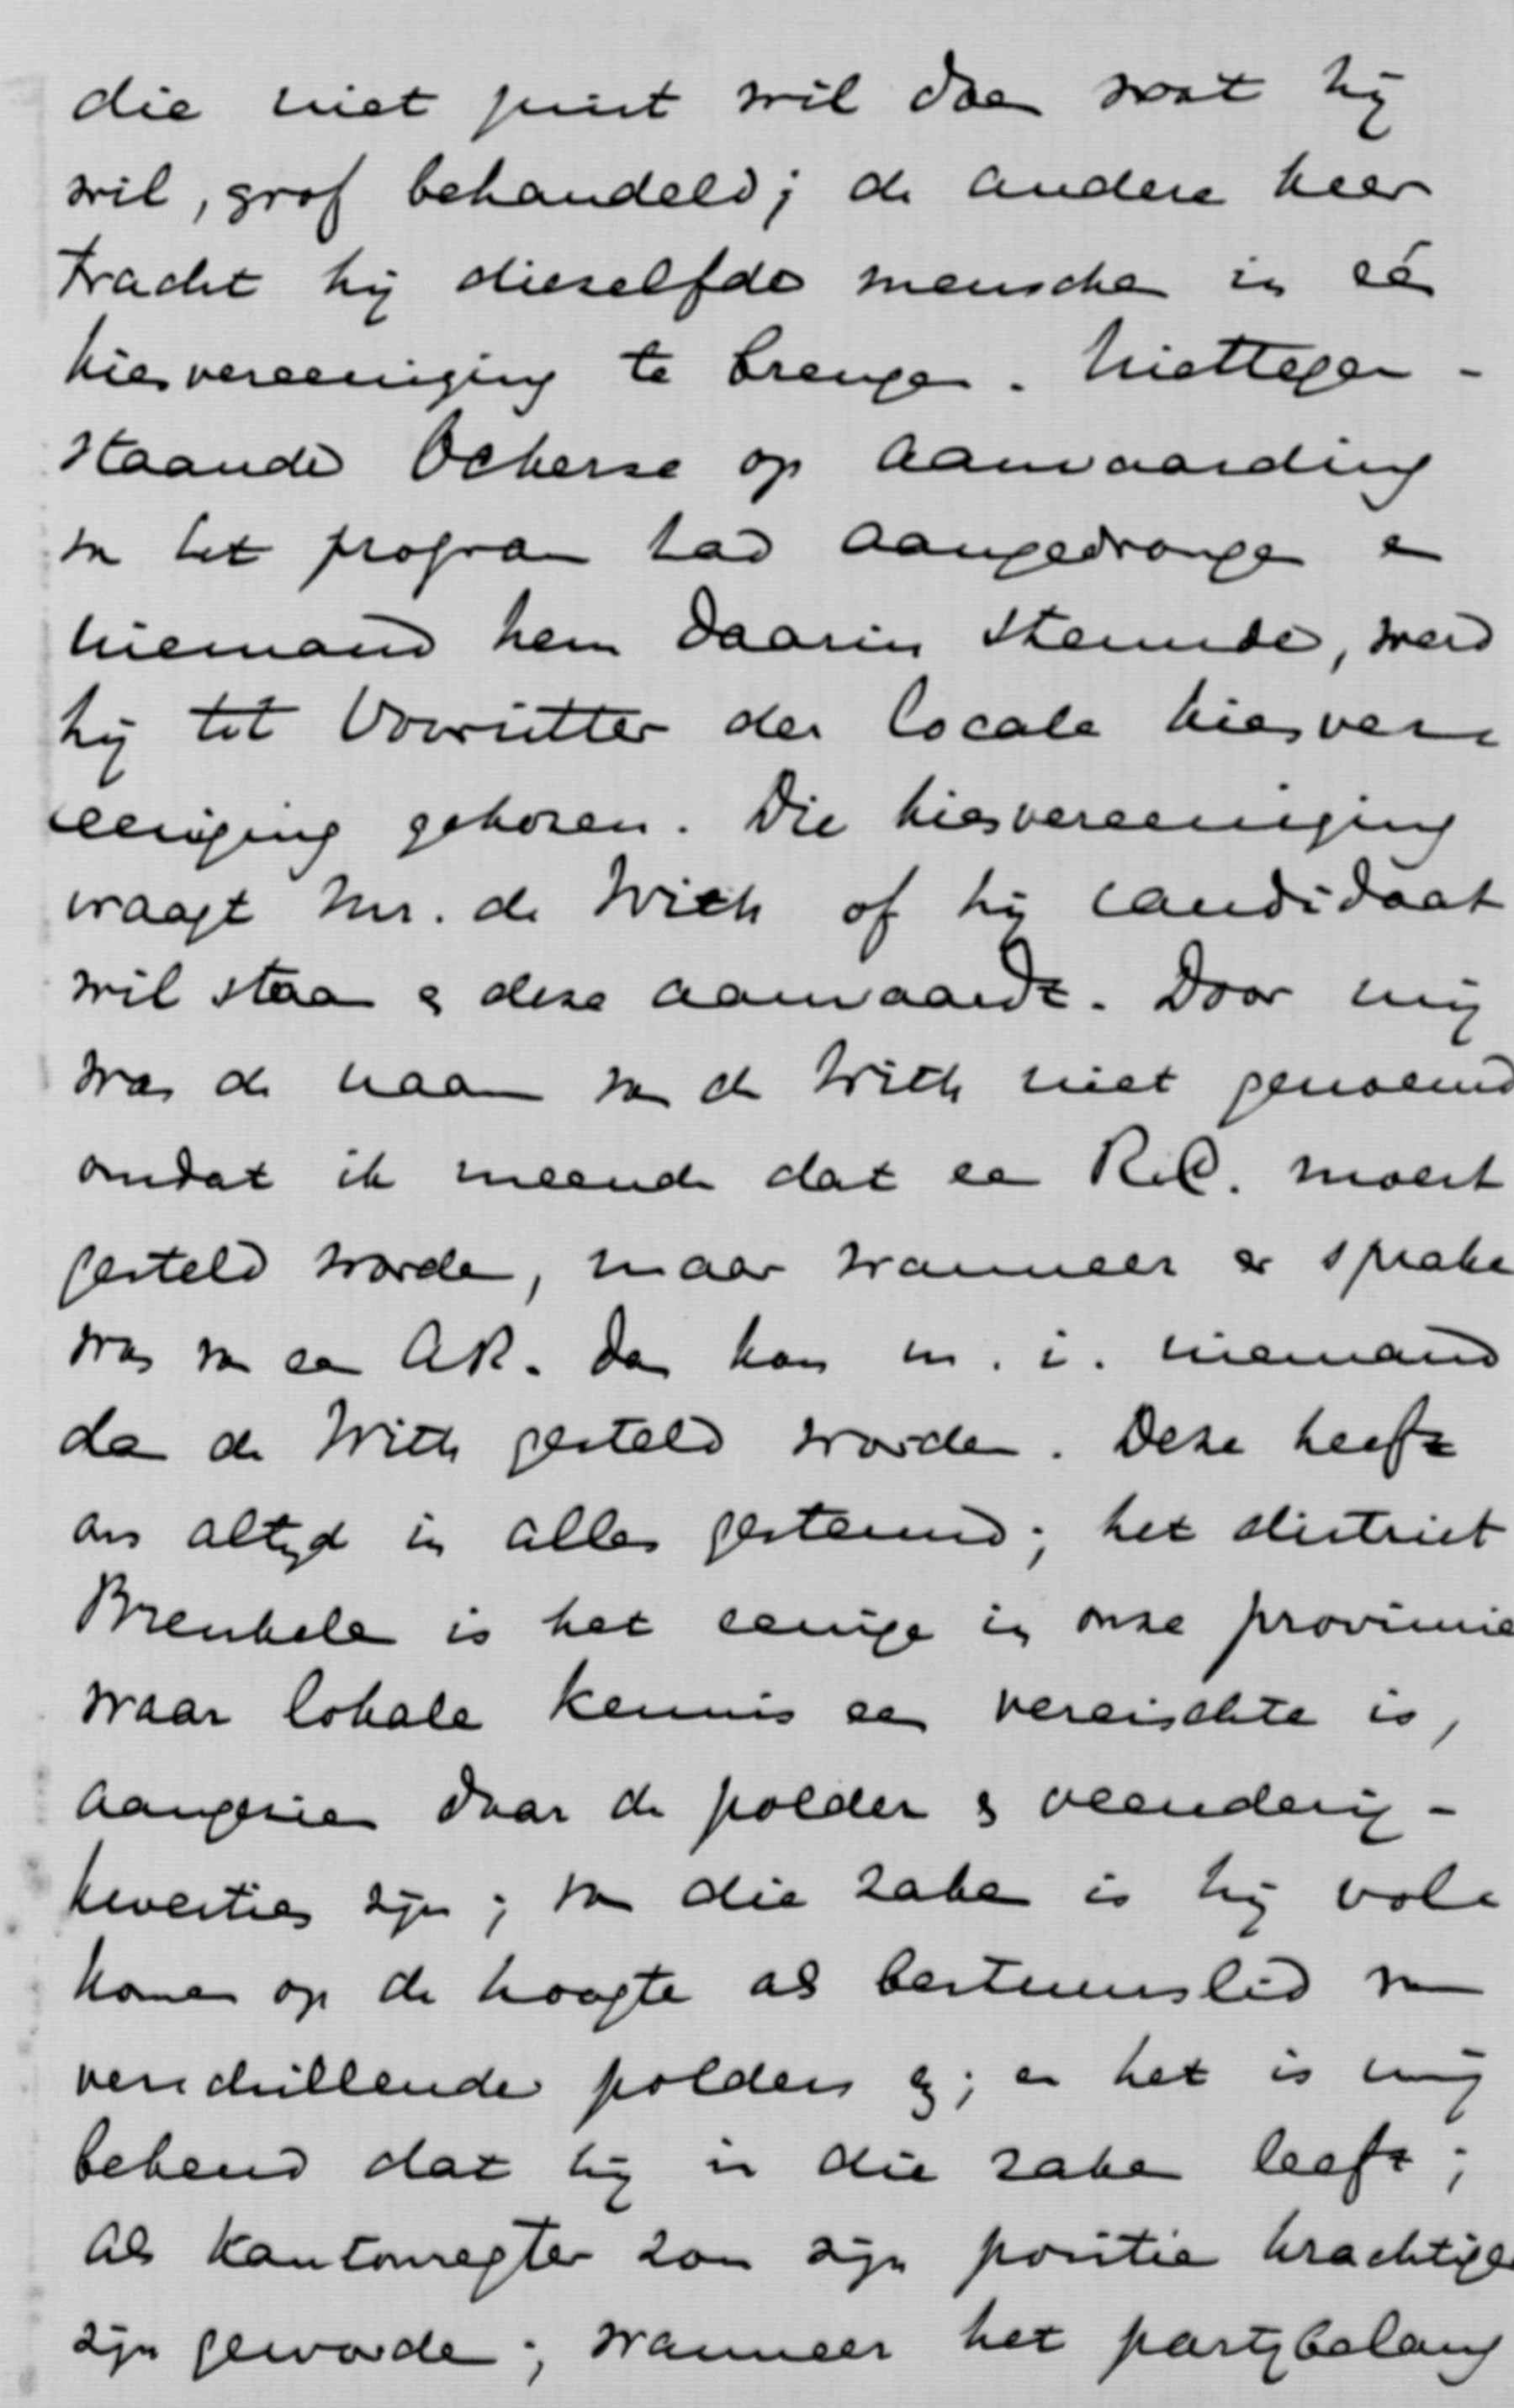 die niet juist wil doen wat hij
wil, grof behandeld; de andere keer
tracht hij dieselfde menschen in één
kiesvereeniging te brengen. Niettegen-
staande Ockerse op aanvaarding
van het program had aangedrongen en
niemand hem daarin steunde, werd
hij tot Voorzitter der locale kiesver-
eeniging gekozen. Die kiesvereeniging
vraagt Mr. de With of hij candidaat
wil staan & deze aanvaardt. Door mij
was de naam van de With niet genoemd
omdat ik meende dat een R.C. moest
gesteld worden, maar wanneer er sprake
was van een AR. dan kon m. i. niemand
dan de With gesteld worden. Deze heeft
ons altijd in alles gesteund; het district
Breukelen is het eenige in onze provincie
waar lokale kennis een vereischte is,
aangezien daar de polder & veenderij-
kwesties zijn; van die zaken is hij vol-
komen op de hoogte als bestuurslid van
verschillende polders &; en het is mij
bekend dat hij in die zaken leeft;
als Kantonregter zou zijn positie krachtiger
zijn geworden; wanneer het partijbelang